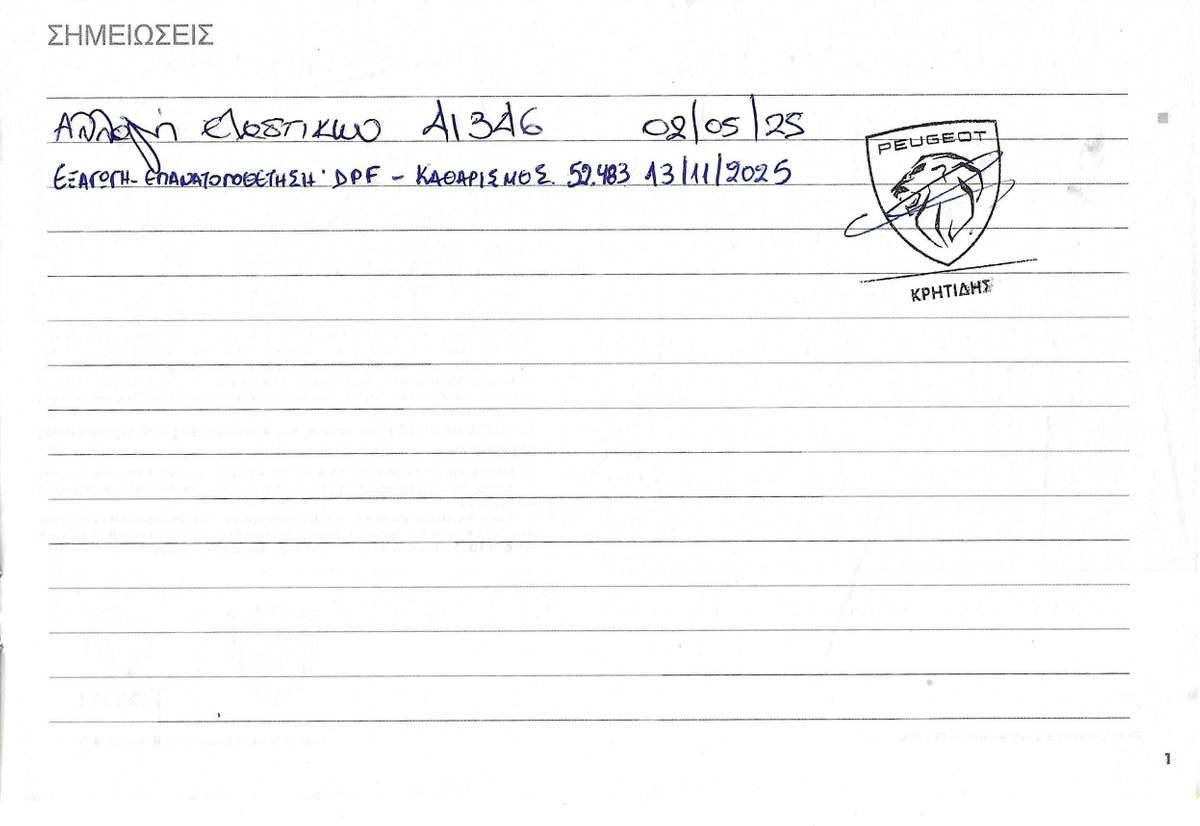 ΣΗΜΕΙΩΣΕΙΣ
Αλλαγή ελαστικων 41346 02/05/25
ΕΞΑΓΩΓΗ - ΕΠΑΝΑΤΟΠΟΘΕΤΗΣΗ DPF - ΚΑΘΑΡΙΣΜΟΣ. 52.483 13/11/2025
PEUGEOT
ΚΡΗΤΙΔΗΣ
1